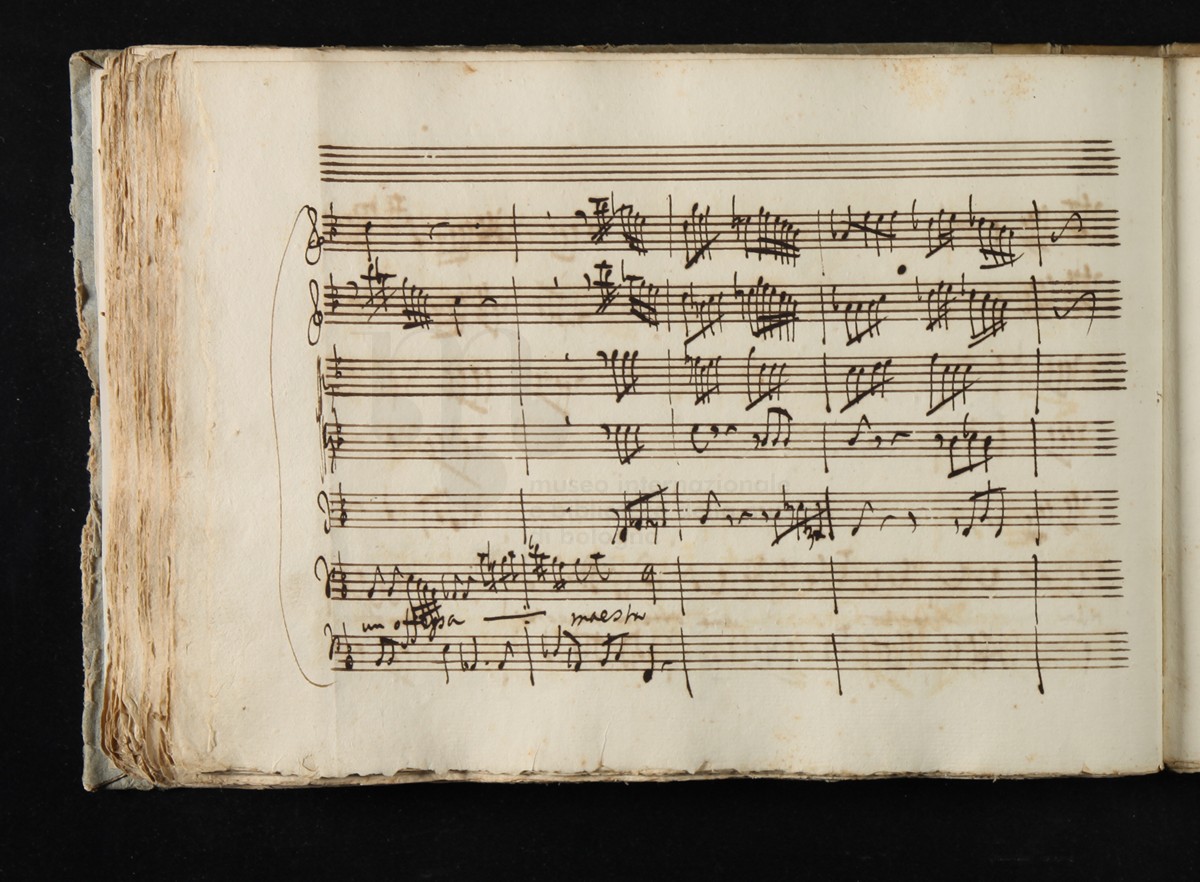 museo internazionale
di bologna
un offesa — maestà